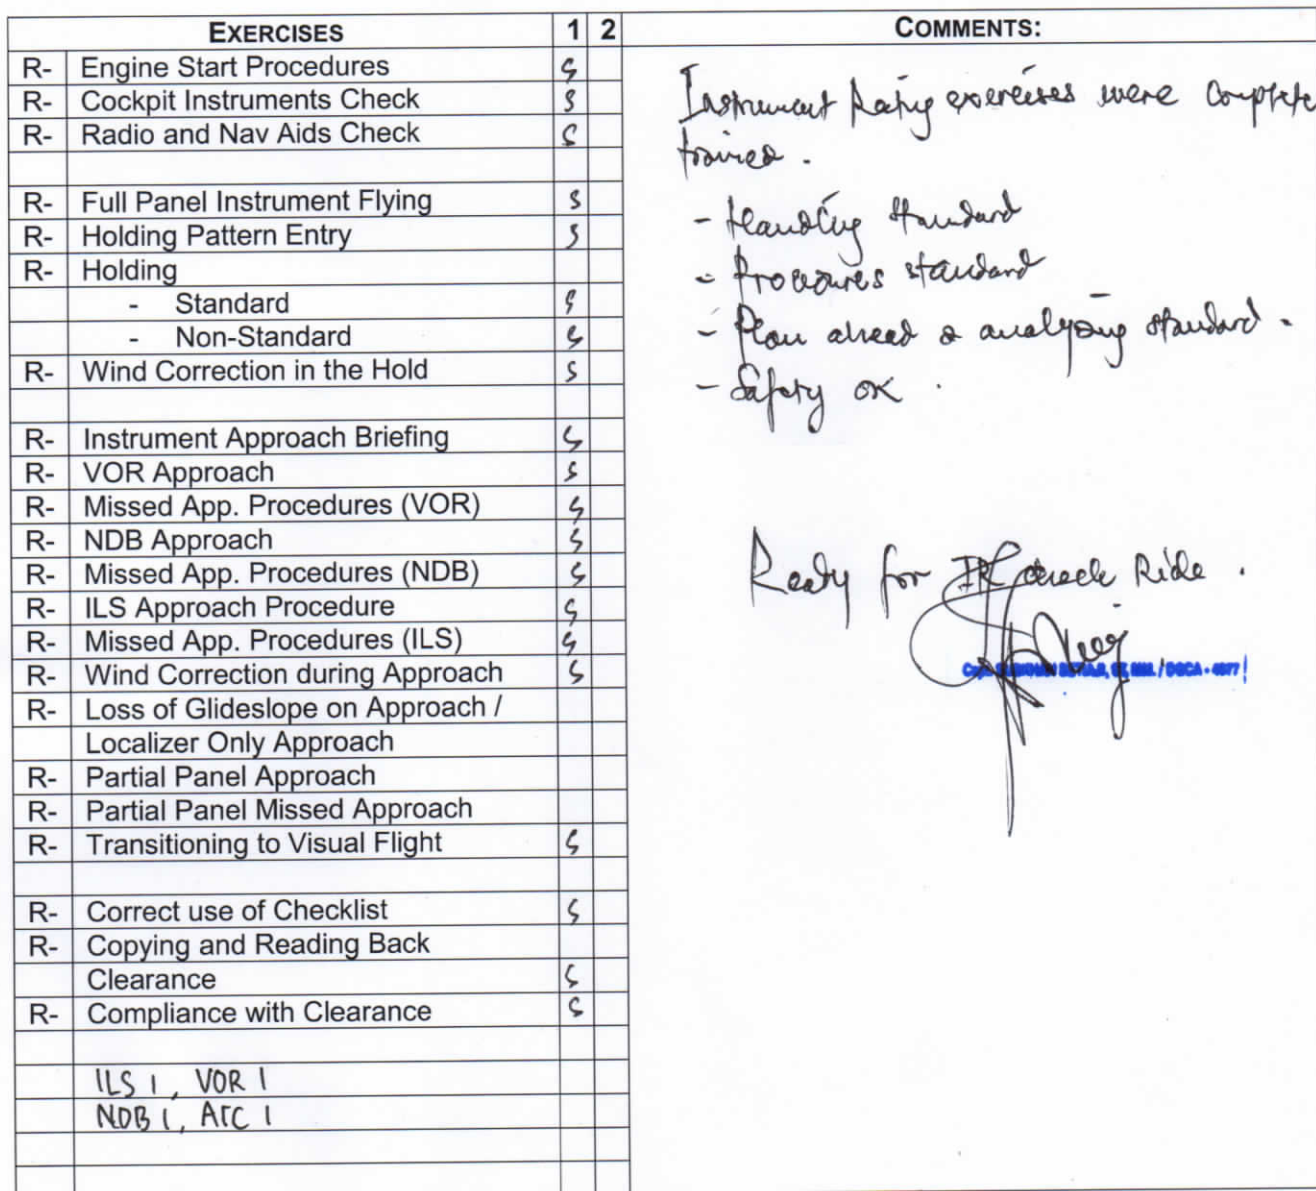 EXERCISES 1 2 COMMENTS:
R- Engine Start Procedures S
R- Cockpit Instruments Check S
R- Radio and Nav Aids Check S
R- Full Panel Instrument Flying S
R- Holding Pattern Entry S
R- Holding
- Standard S
- Non-Standard S
R- Wind Correction in the Hold S
R- Instrument Approach Briefing S
R- VOR Approach S
R- Missed App. Procedures (VOR) S
R- NDB Approach S
R- Missed App. Procedures (NDB) S
R- ILS Approach Procedure S
R- Missed App. Procedures (ILS) S
R- Wind Correction during Approach S
R- Loss of Glideslope on Approach /
Localizer Only Approach
R- Partial Panel Approach
R- Partial Panel Missed Approach
R- Transitioning to Visual Flight S
R- Correct use of Checklist S
R- Copying and Reading Back
Clearance S
R- Compliance with Clearance S
ILS 1, VOR 1
NDB 1, ARC 1
Instrument Rating exercises were complete
trained.
- Handling standard
- Procedures standard
- Plan ahead & analyzing standard.
- Safety OK.
Ready for IR check Ride.
/ DGCA - 4077